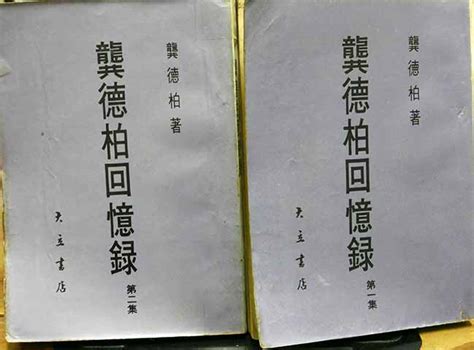 龔德柏著
龔德柏回憶録
第二集
天立書店
龔德柏著
龔德柏回憶録
第一集
天立書店